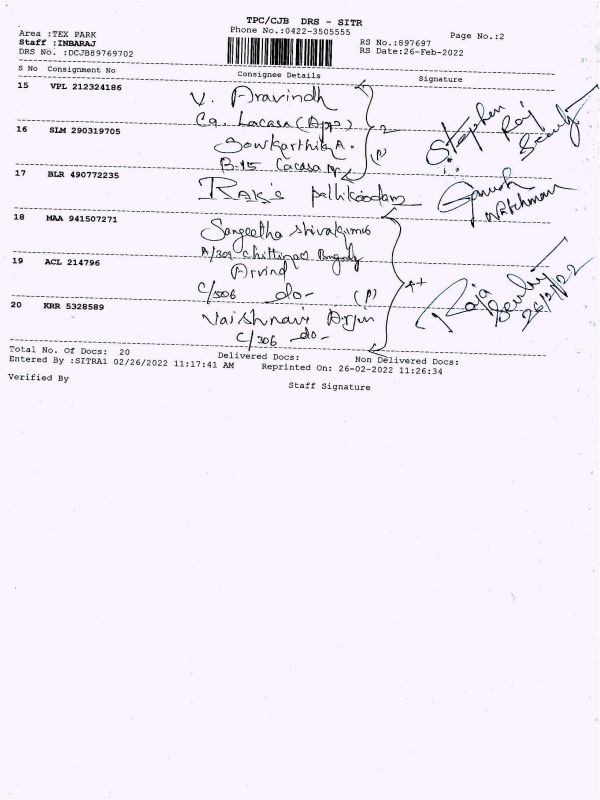 TPC/CJB DRS - SITR
Area :TEX PARK Phone No.:0422-3505555 Page No.:2
Staff :INBARAJ RS No.:897697
DRS No. :DCJB89769702 RS Date:26-Feb-2022
S No Consignment No Consignee Details Signature
15 VPL 212324186 V. Aravindh
C9. Lacasa (App) 2
16 SLM 290319705 Sowkarthika A. (P) Stephen Raj
B-15 Cacasa
17 BLR 490772235 RAK's pallikoodam Ganesh
watchman
18 MAA 941507271 Sangeetha
A/301
19 ACL 214796 Arvind
C/506 -do- (P) 4+ Raja
26/2/22
20 KRR 5328589 Vaishnavi Arjun
C/306 -do-
Total No. Of Docs: 20 Delivered Docs: Non Delivered Docs:
Entered By :SITRA1 02/26/2022 11:17:41 AM Reprinted On: 26-02-2022 11:26:34
Verified By Staff Signature